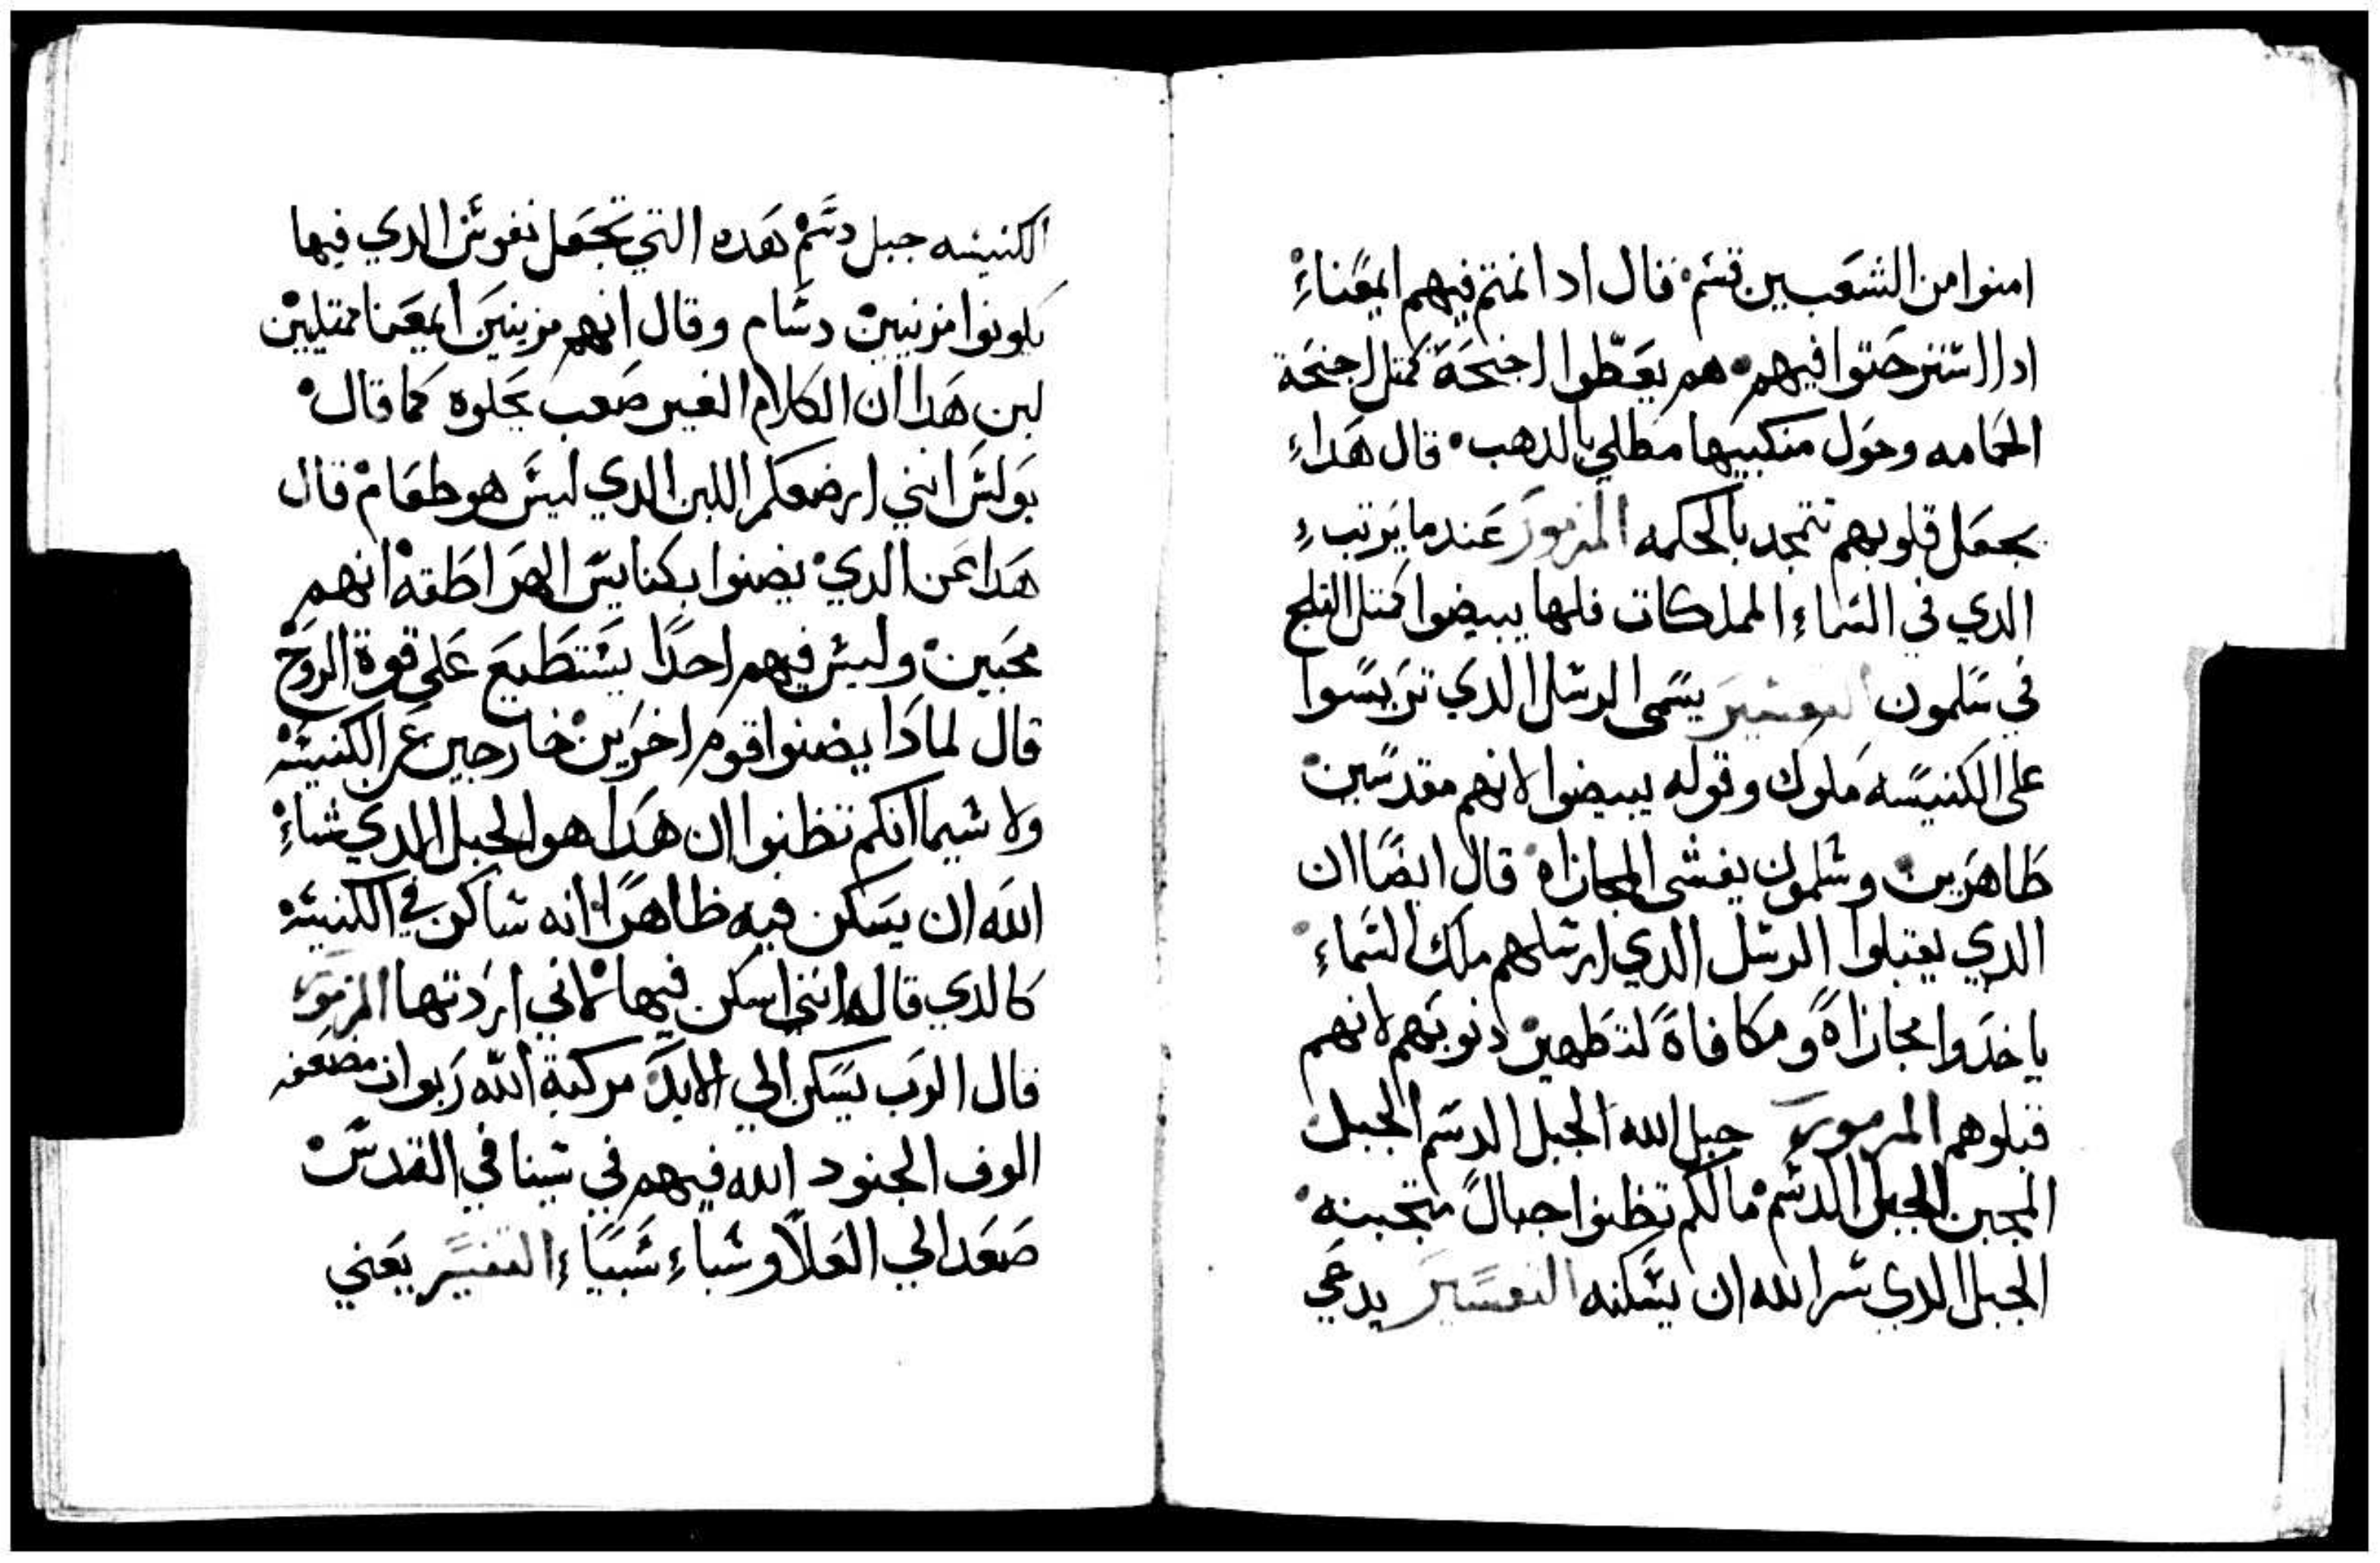 امنوا من الشعبين قسم فال ادا نمتم فيهم ايمعناء
ادا استرحتوا فيهم هم يعطوا اجنحة كمتل اجنحة
الحمامه وحول منكبيها مطلي بالدهب قال هداء
يجعل قلوبهم تتمجد بالحكمه المزمور عندما يرتب
الدي في السماء المملكات فلها يبيضوا كمتل التلج
في سلمون التفسير يسمى الرسل الدي تريسوا
على الكنيسه ملوك وقوله يبيضوا لانهم مقدسين
طاهرين وسلمون يفسى المجازاه قال ايضا ان
الدي يقبلوا الرسل الدي ارسلهم ملك السماء
ياخدوا مجازاة ومكافاة لتطهير دنوبهم لانهم
قبلوهم المزمور جبل الله الجبل الدسم الجبل
المجبن الجبل الدسم مالكم تظنوا جبال متجبنه
الجبل الدي سر الله ان يسكنه التفسير يدعي
الكنيسه جبل دسم هده التي تجعل نفوس الدي فيها
يكونوا مزنيين دسام وقال انهم مزينين ايمعنا ممتليين
لبن هدا ان الكلام الغير صعب يحلوه كما قال
بولس انني ارضعكم اللبن الدي ليس هو طعام قال
هدا عن الدي يضنوا بكنايس الهراطقه انهم
مجبين وليس فيهم احدا يستطيع على قوة الروح
قال لمادا يضنوا قوم اخرين خارجين عن الكنيسه
ولا سيما انكم تظنوا ان هدا هو الجبل الدي شاء
الله ان يسكن فيه ظاهرا انه ساكن في الكنيسه
كالدي قال انني اسكن فيها لاني اردتها المزمور
قال الرب يسكن الي الابد مركبة الله ربوات مضعفه
الوف الجنود الله فيهم في سينا في القدس
صعد الي العلا وسباء سبيا التفسير يعني